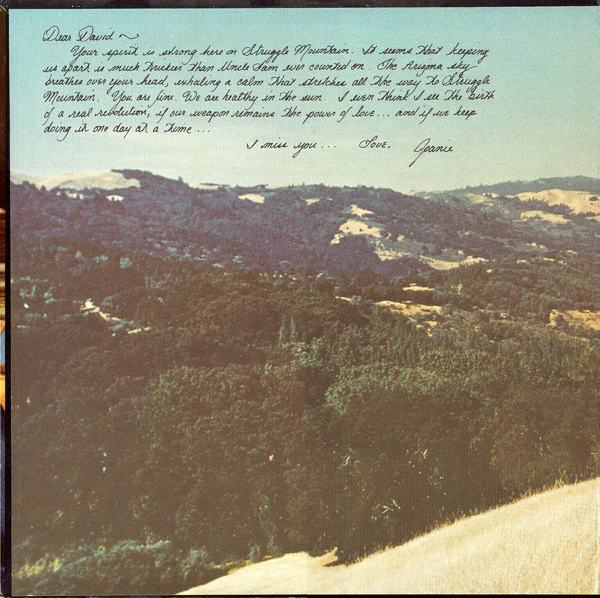 Dear David ~
Your spirit is strong here on Struggle Mountain. It seems that keeping
us apart is much trickier than Uncle Sam ever counted on. The Krizma sky
breathes over your head, exhaling a calm that stretches all the way to Struggle
Mountain. You are fine. We are healthy in the sun. I even think I see the birth
of a real revolution, if our weapon remains the power of love... and if we keep
doing it one day at a time...
I miss you... Love, Joanie